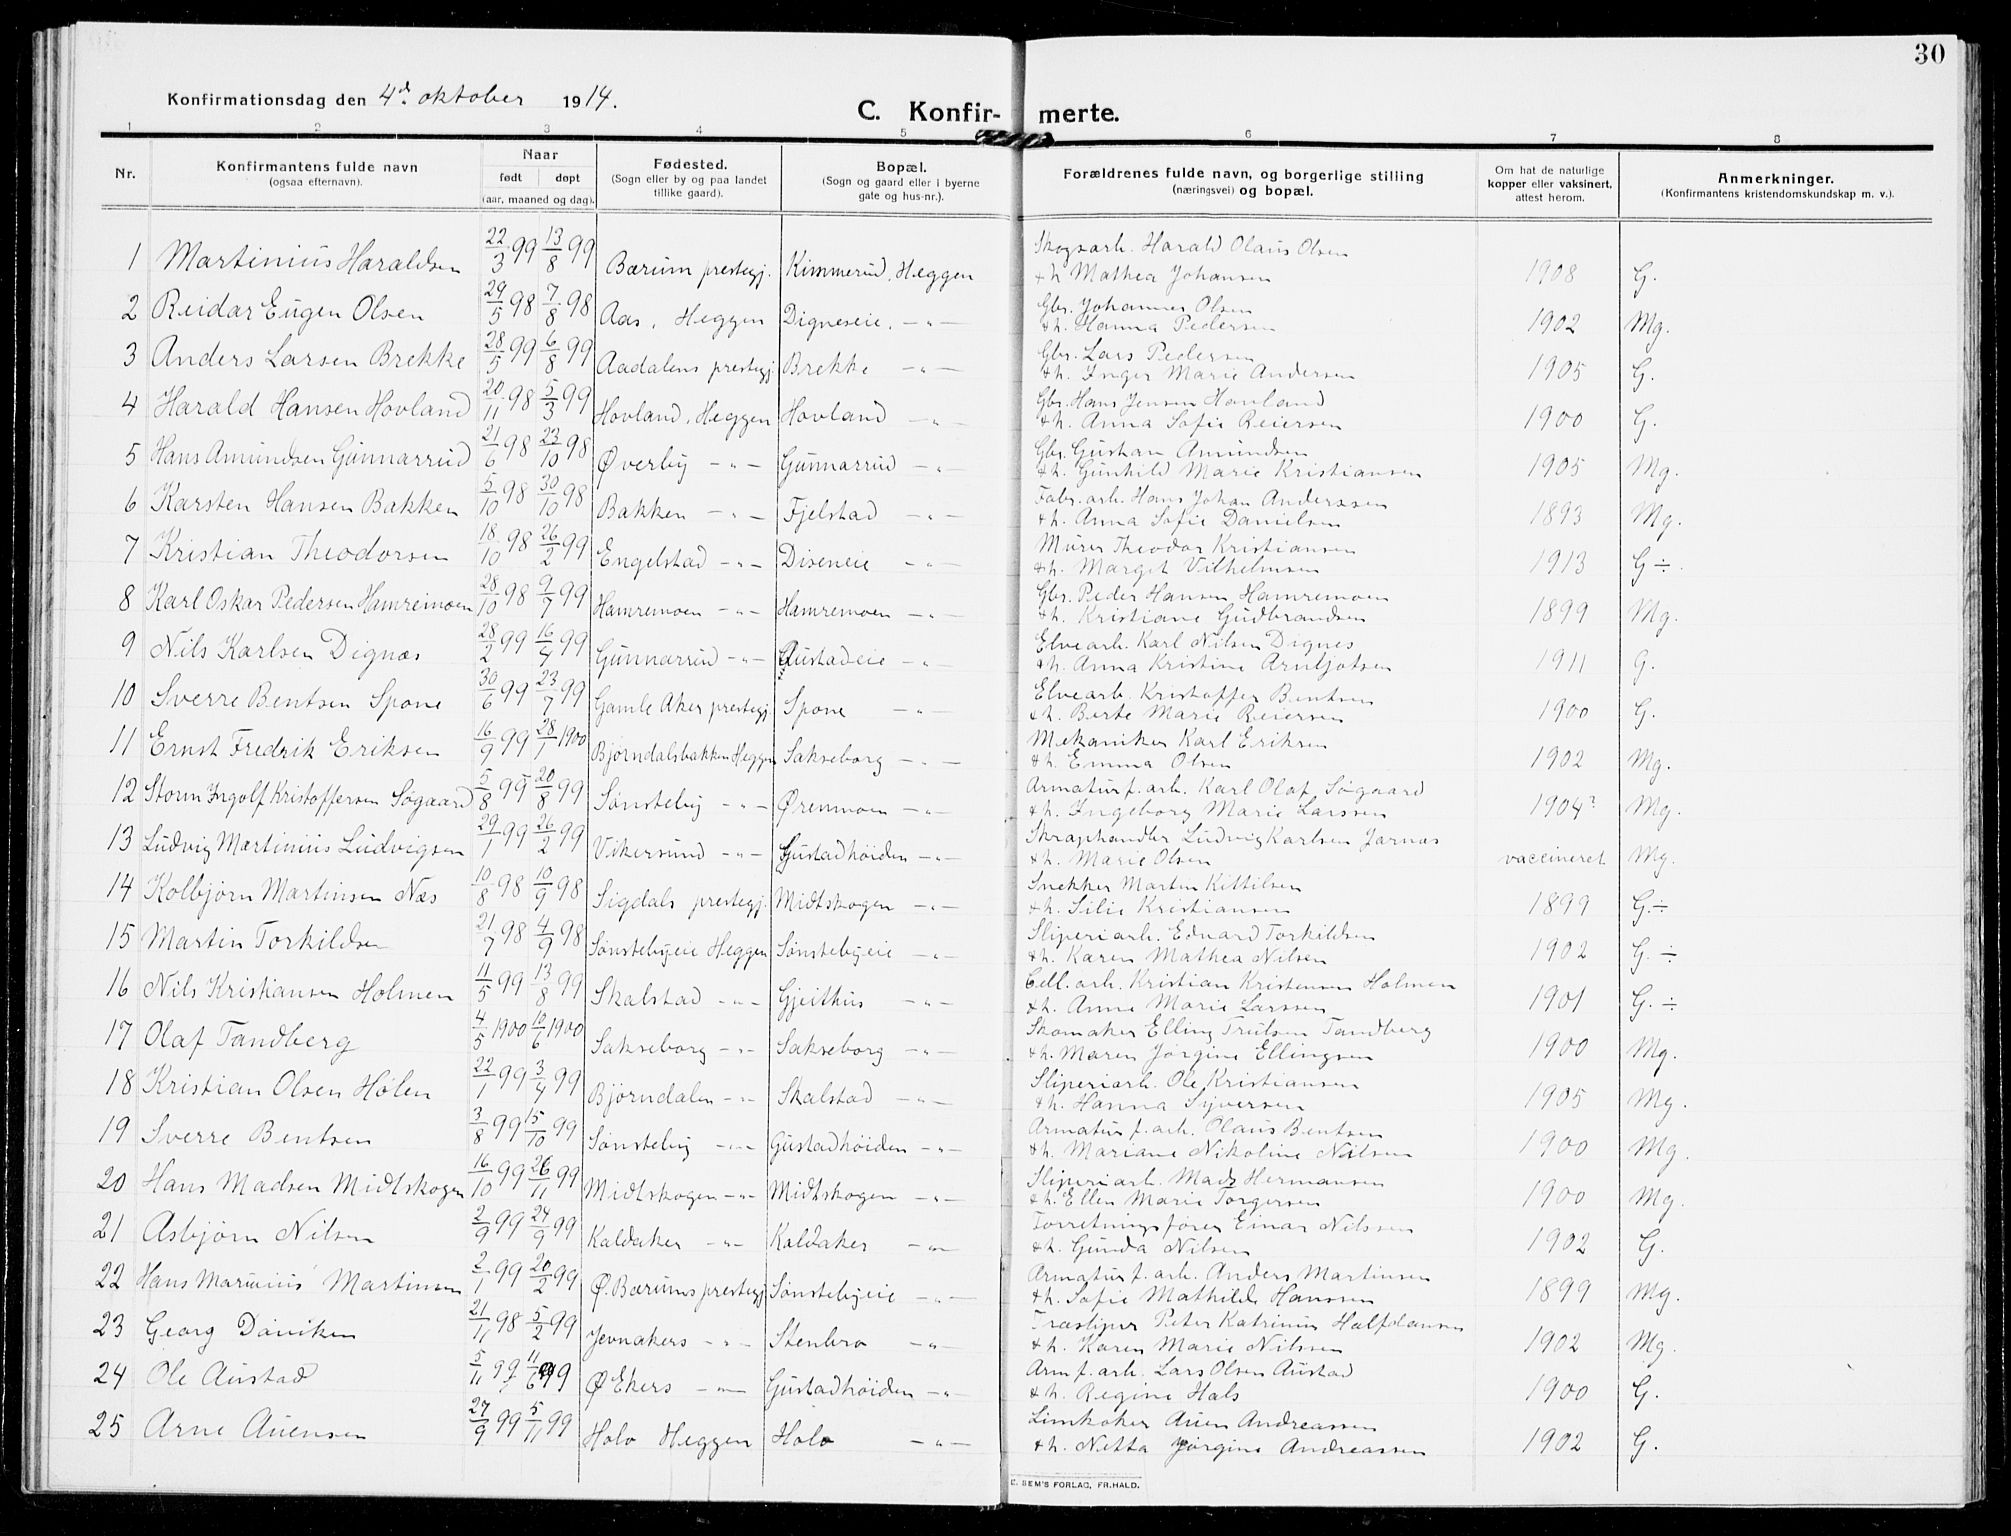 30
Konfirmationsdag den 4de oktober 1914.
C. Konfir- merte.
1 2 3 4 5 6 7 8
Nr. Konfirmantens fulde navn (ogsaa efternavn). Naar født døpt (aar, maaned og dag). Fødested. (Sogn eller by og paa landet tillike gaard). Bopæl. (Sogn og gaard eller i byerne gate og hus-nr.). Forældrenes fulde navn, og borgerlige stilling (næringsvei) og bopæl. Om hat de naturlige kopper eller vaksinert, attest herom. Anmerkninger. (Konfirmantens kristendomskundskap m. v.).
1 Martinius Haraldsen 22/3 99 13/8 99 Bærum prestegj. Kimmerud, Heggen Skogsarb. Harald Olaus Olsen
& h. Mathea Johansen 1908 G.
2 Reidar Eugen Olsen 29/5 98 7/8 98 Aas, Heggen Digneseie, -"- Gbr. Johannes Olsen
& h. Hanna Pedersen 1902 Mg.
3 Anders Larsen Brekke 28/5 99 6/8 99 Aadalens prestegj. Brekke -"- Gbr. Lars Pedersen
& h. Inger Marie Andersen 1905 G.
4 Harald Hansen Hovland 20/11 98 5/3 99 Hovland, Heggen Hovland -"- Gbr. Hans Jensen Hovland
& h. Anna Sofie Reiersen 1900 G.
5 Hans Amundsen Gunnarrud 21/6 98 23/10 98 Øverby -"- Gunnarrud -"- Gbr. Gustav Amundsen
& h. Gunhild Marie Kristiansen 1905 Mg.
6 Karsten Hansen Bakken 5/10 98 30/10 98 Bakken -"- Fjelstad -"- Fabr. arb. Hans Johan Anderssen
& h. Anna Sofie Danielsen 1893 Mg.
7 Kristian Theodorsen 18/10 98 26/2 99 Engelstad -"- Diseneie -"- Murer Theodor Kristiansen
& h. Margit Vilhelmsen 1913 G ÷.
8 Karl Oskar Pedersen Hamremoen 28/10 98 9/7 99 Hamremoen -"- Hamremoen -"- Gbr. Peder Hansen Hamremoen
& h. Kristiane Gudbrandsen 1899 Mg.
9 Nils Karlsen Dignæs 28/2 99 16/4 99 Gunnarrud -"- Austadeie -"- Elvearb. Karl Nilsen Dignes
& h. Anna Kristine Arntjotsen 1911 G.
10 Sverre Bentsen Spone 30/6 99 23/7 99 Gamle Aker prestegj. Spone -"- Elvearb. Kristoffer Bentsen
& h. Berte Marie Reiersen 1900 G.
11 Ernst Fredrik Eriksen 16/9 99 28/1 1900 Bjørndalsbakken Heggen Sakseborg -"- Mekaniker Karl Eriksen
& h. Emma Olsen 1902 Mg.
12 Storm Ingolf Kristoffersen Søgaard 5/8 95 20/8 99 Sønsteby -"- Ørenmoen -"- Armatur f. arb. Karl Olaf Søgaard
& h. Ingeborg Marie Larssen 1904? Mg.
13 Ludvig Martinius Ludvigsen 29/1 99 26/2 99 Vikersund -"- Gustadhøiden -"- Skraphandler Ludvig Karlsen Jarnæs
& h. Marie Olsen vaccineret Mg.
14 Kolbjørn Martinsen Næs 10/8 98 10/9 98 Sigdals prestegj. Midtskogen -"- Snekker Martin Kittilsen
& h. Silie Kristiansen 1899 G. ÷
15 Martin Torkildsen 21/7 98 4/9 98 Sønstebyeie Heggen Sønstebyeie -"- Sliperiarb. Edvard Torkildsen
& h. Karen Mathea Nilsen 1902 G. ÷
16 Nils Kristiansen Holmen 11/5 99 13/8 99 Skalstad -"- Gjeithus -"- Cell. arb. Kristian Kristensen Holmen
& h. Anne Marie Larssen 1901 G. ÷
17 Olaf Tandberg 4/5 1900 10/6 1900 Sakseborg -"- Sakseborg -"- Skomaker Elling Trulsen Tandberg
& h. Maren Jørgine Ellingsen 1900 Mg.
18 Kristian Olsen Hølen 22/1 99 3/4 99 Bjørndalen -"- Skalstad -"- Sliperiarb. Ole Kristiansen
& h. Hanna Syversen 1905 Mg.
19 Sverre Bentsen 3/8 99 15/10 99 Sønsteby -"- Gustadhøiden -"- Armatur f. arb. Olaus Bentsen
& h. Mariane Nikoline Nilsen 1900 Mg.
20 Hans Madsen Midtskogen 16/10 99 26/11 99 Midtskogen -"- Midtskogen -"- Sliperiarb. Mads Hermansen
& h. Ellen Marie Torgersen 1900 Mg.
21 Asbjørn Nilsen 2/9 99 24/9 99 Kaldaker -"- Kaldaker -"- Forretningsfører Einar Nilssen
& h. Gunda Nilsen 1902 G.
22 Hans Marinius Martinsen 2/1 99 20/2 99 Ø. Bærums prestegj. Sønstebyeie -"- Armatur f. arb. Anders Martinsen
& h. Sofie Mathilde Hanssen 1899 Mg.
23 Georg Døviken 21/11 98 5/2 99 Jevnakers -"- Stenbro -"- Træsliper Peter Katrinus Halfdansen
& h. Karen Marie Nilssen 1902 Mg.
24 Ole Austad 5/11 99 11/6 99 Ø Ekers -"- Gustadhøiden -"- Arm f. arb. Lars Olsen Austad
& h. Regine Hals 1900 G.
25 Arne Auensen 27/9 99 5/11 99 Holo Heggen Holo -"- Limkoker Auen Andreassen
& h. Netta Jørgine Andreassen 1902 G.
E. SEM'S FORLAG, FR.HALD.